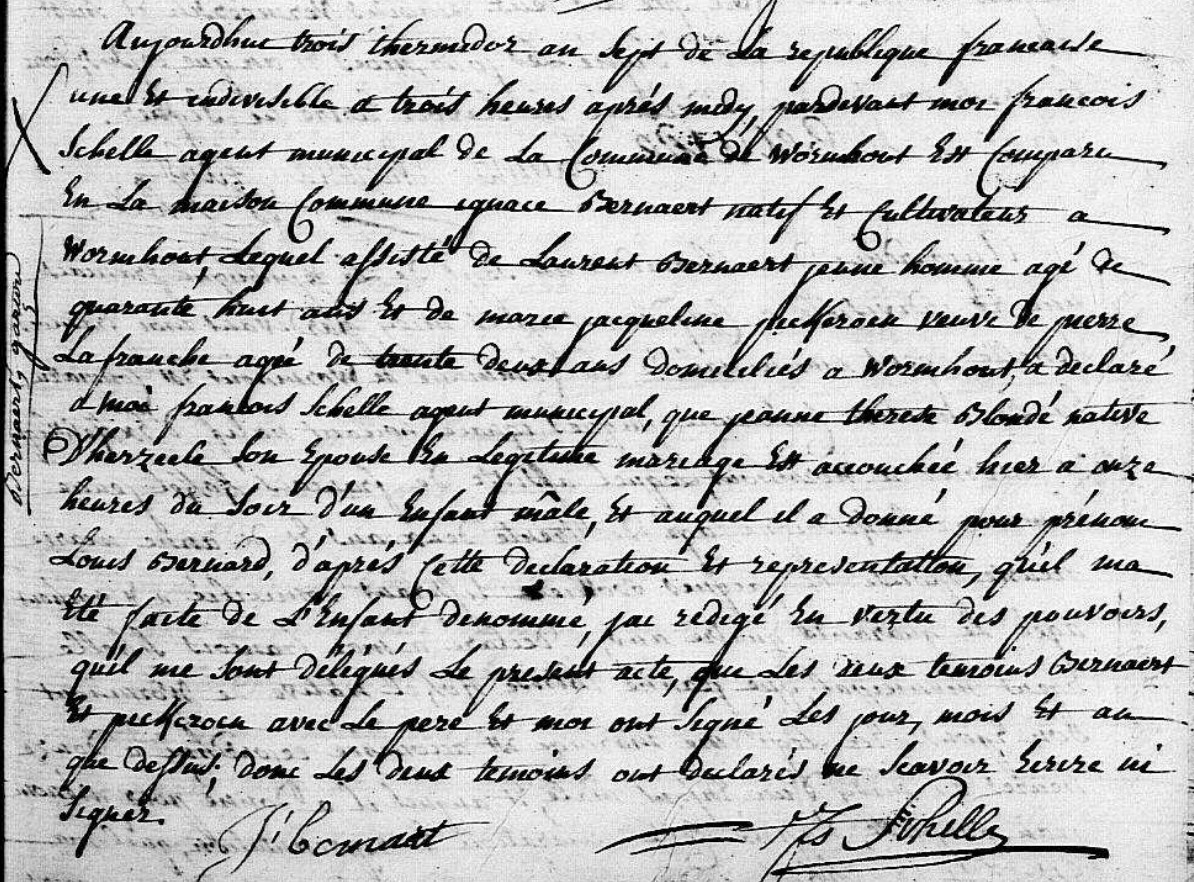 Aujourdhui trois thermidor an sept de La republique francaise
une Et indivisible a trois heures aprés midy, pardevant moi francois
Schelle agent municipal de La Commune de Wormhout Est Comparu
En La maison Commune ignace Bernaert natif Et Cultivateur a
Wormhout Lequel assisté de Laurent Bernaert jeune homme agé de
quarante huit ans Et de marie jacqueline veuve de pierre
Lafranche agée de trente deux ans domiciliés a Wormhout, a declaré
a moi francois Schelle agent municipal, que jeanne therese Blondé native
D'herzeele Son Epouse En Legitime mariage Est accouchée hier a onze
heures du Soir d'un Enfant mâle, Et auquel il a donné pour prénom
Louis Bernard, d'aprés Cette declaration Et representation, qu'il ma
Eté faite de L'Enfant denommé, jai redigé En vertu des pouvoirs,
qu'il me Sont délégués Le present acte, que Les deux temoins Bernaert
Et avec Le pere Et moi ont Signé Les jour, mois Et an
que dessus, donc Les deux temoins ont declarés ne Scavoir Ecrire ni
Signer.
Bernaert, garson
Schelle